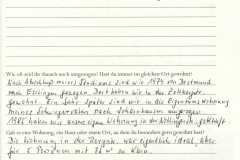 Wie oft seid ihr danach noch umgezogen? Hast du immer im gleichen Ort gewohnt?
Nach Abschluß meines Studiums sind wir 1974 von Dortmund
nach Esslingen gezogen. Dort haben wir in der
gewohnt. Ein Jahr später sind wir in die Eigentumswohnung
meiner Schwiegereltern nach umgezogen
1985 haben wir unsere eigene Wohnung in der gekauft.
Gab es eine Wohnung, ein Haus oder einen Ort, an dem du besonders gern gewohnt hast?
Die Wohnung in der war eigentlich ideal, aber
für 4 Personen mit 75 m² zu klein.